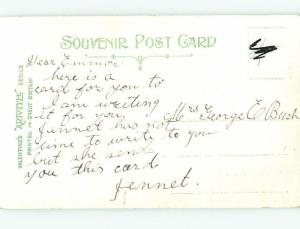 SOUVENIR POST CARD
VALENTINE'S "ARTOTYPE" SERIES
PRINTED IN GREAT BRITAIN
Dear
here is a
card for you to
I am writing
it for you
Jennet has not
time to write to you
but she sent
you this card
Jennet.
Mrs George E Bush